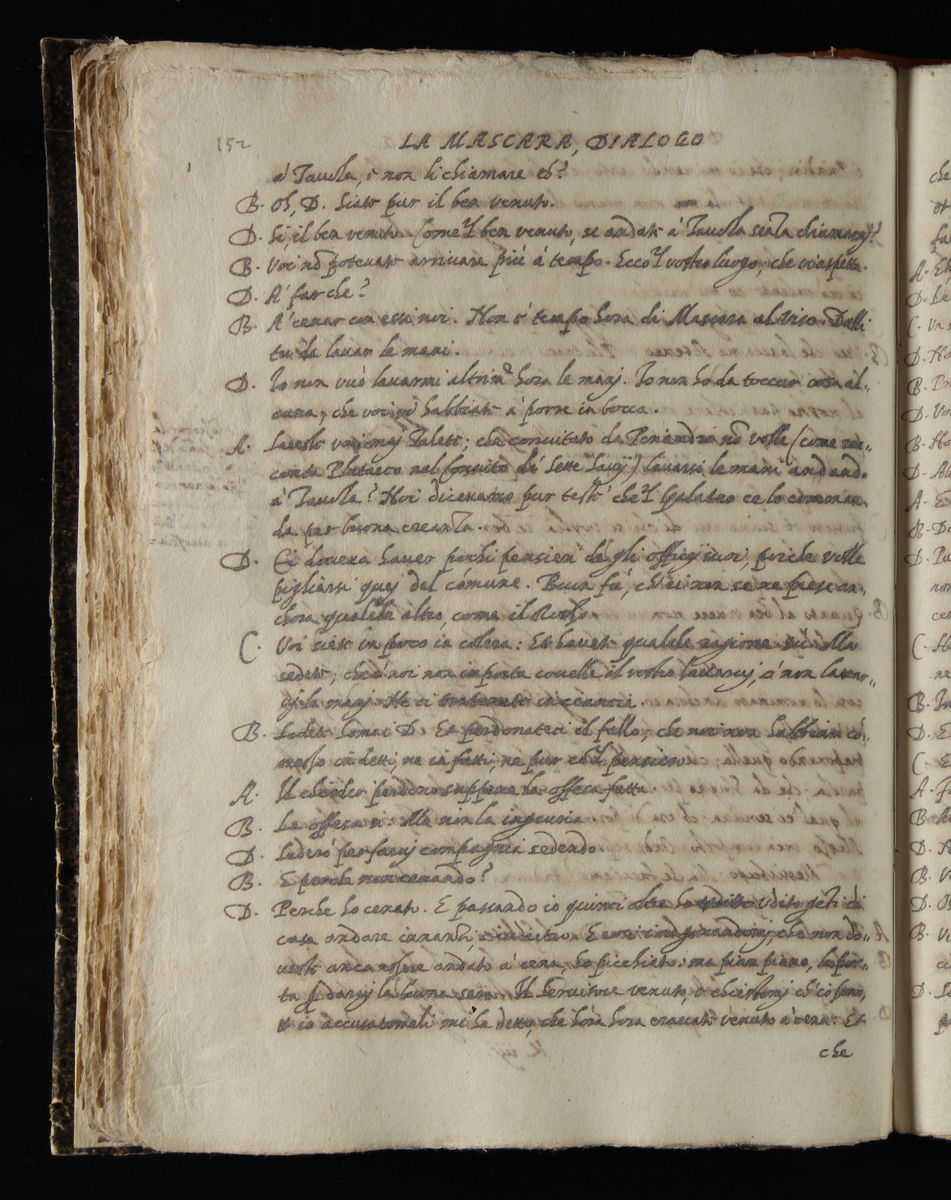 152
LA MASCARA, DIALOGO
à Tavola, e non li chiamare eh?
B. Oh, D. Siate pur il ben venuto.
D. Si, il ben venuto. Come 'l ben venuto, se andate à Tavola senza chiamarmj?
B. Voi nō potevate arrivare più à tempo. Ecco 'l vostro luogo, che vi aspetta.
D. A' far che?
B. A' cenar con essi noi. Non è tempo hora di Mascara al viso. Dalli
tu da lavar le mani.
D. Io non vuò lavarmi altrim.ti hora le manj. Io non ho da toccar cosa al-
cuna, che voi habbiate à porre in bocca.
A. Lavesti voi maj Talete; che convitato da Periandro nō volle (come rac-
conta Plutarco nel Convito de' Sette Savij) lavarsi le mani andando
à Tavola? Noi dicevamo pur teste che 'l Galateo ce lo comman-
da per buona creanza.
D. Ei doveva haver pochi pensieri de gli officij suoi, poiche volle
pigliarsi quej del comune. Buon fa, ch'ei non se ne prese an-
chora qualche altro, come il
C. Voi siete un poco in colera: Et havete qualche ragione
sedete; che à noi non importa covelle il vostro lavarvj, ò non lavar-
vj le manj. Ne ci in ciancie.
B. Sedete homai D. Et perdonateci il fallo, che noi non habbiam cō-
messo in detti, ne in fatti, ne pur co'l pensiero.
A. Il chieder perdono suppone la offesa fatta.
B. La offesa sì: Ma non la ingiuria.
D. Sederò per farvj compagnia sedendo.
B. E perche non cenando?
D. Perche ho cenato. E passando io quinci ho udito gēti di
casa andare innanzi, e indietro. E che non do-
veste ancora essere andato à cena, ho picchiato: ma pian piano, la por-
ta p darvj la buona sera. Il Servitore venuto, ch'io sono,
et io accusatomeli mi ha detto, che hora hora eravate venuto à cena: Et
che